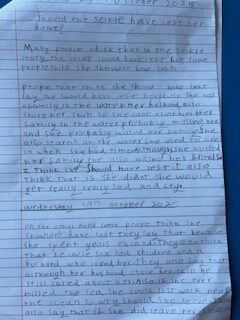 October 2025
Should the Selkie have left her
home?
Many people think that in the Selkie
story, the selkie should have left but some
people think she shouldnt have left.
people think that she should have left
say she should have left because she has
a family in the water. Her husband also
stole her skin so she cant
family in the water probably missed her
and she probably missed her family. She
also on the water she used to live
in when she had
her family she also missed her friends so
I think she should have left. I also
think that if she didnt she would
get really really sad and cry.
Wednesday october 2025
On the other hand some people think she
shouldn't have left they say that because
she spent years on land. They also think
that because she had children and a
husband who loved her. They also say that
although her husband stole her skin he
still cared about her. Also if she ever
missed the sea she could just walk near
the ocean so why should she leave
also say that if she did leave her